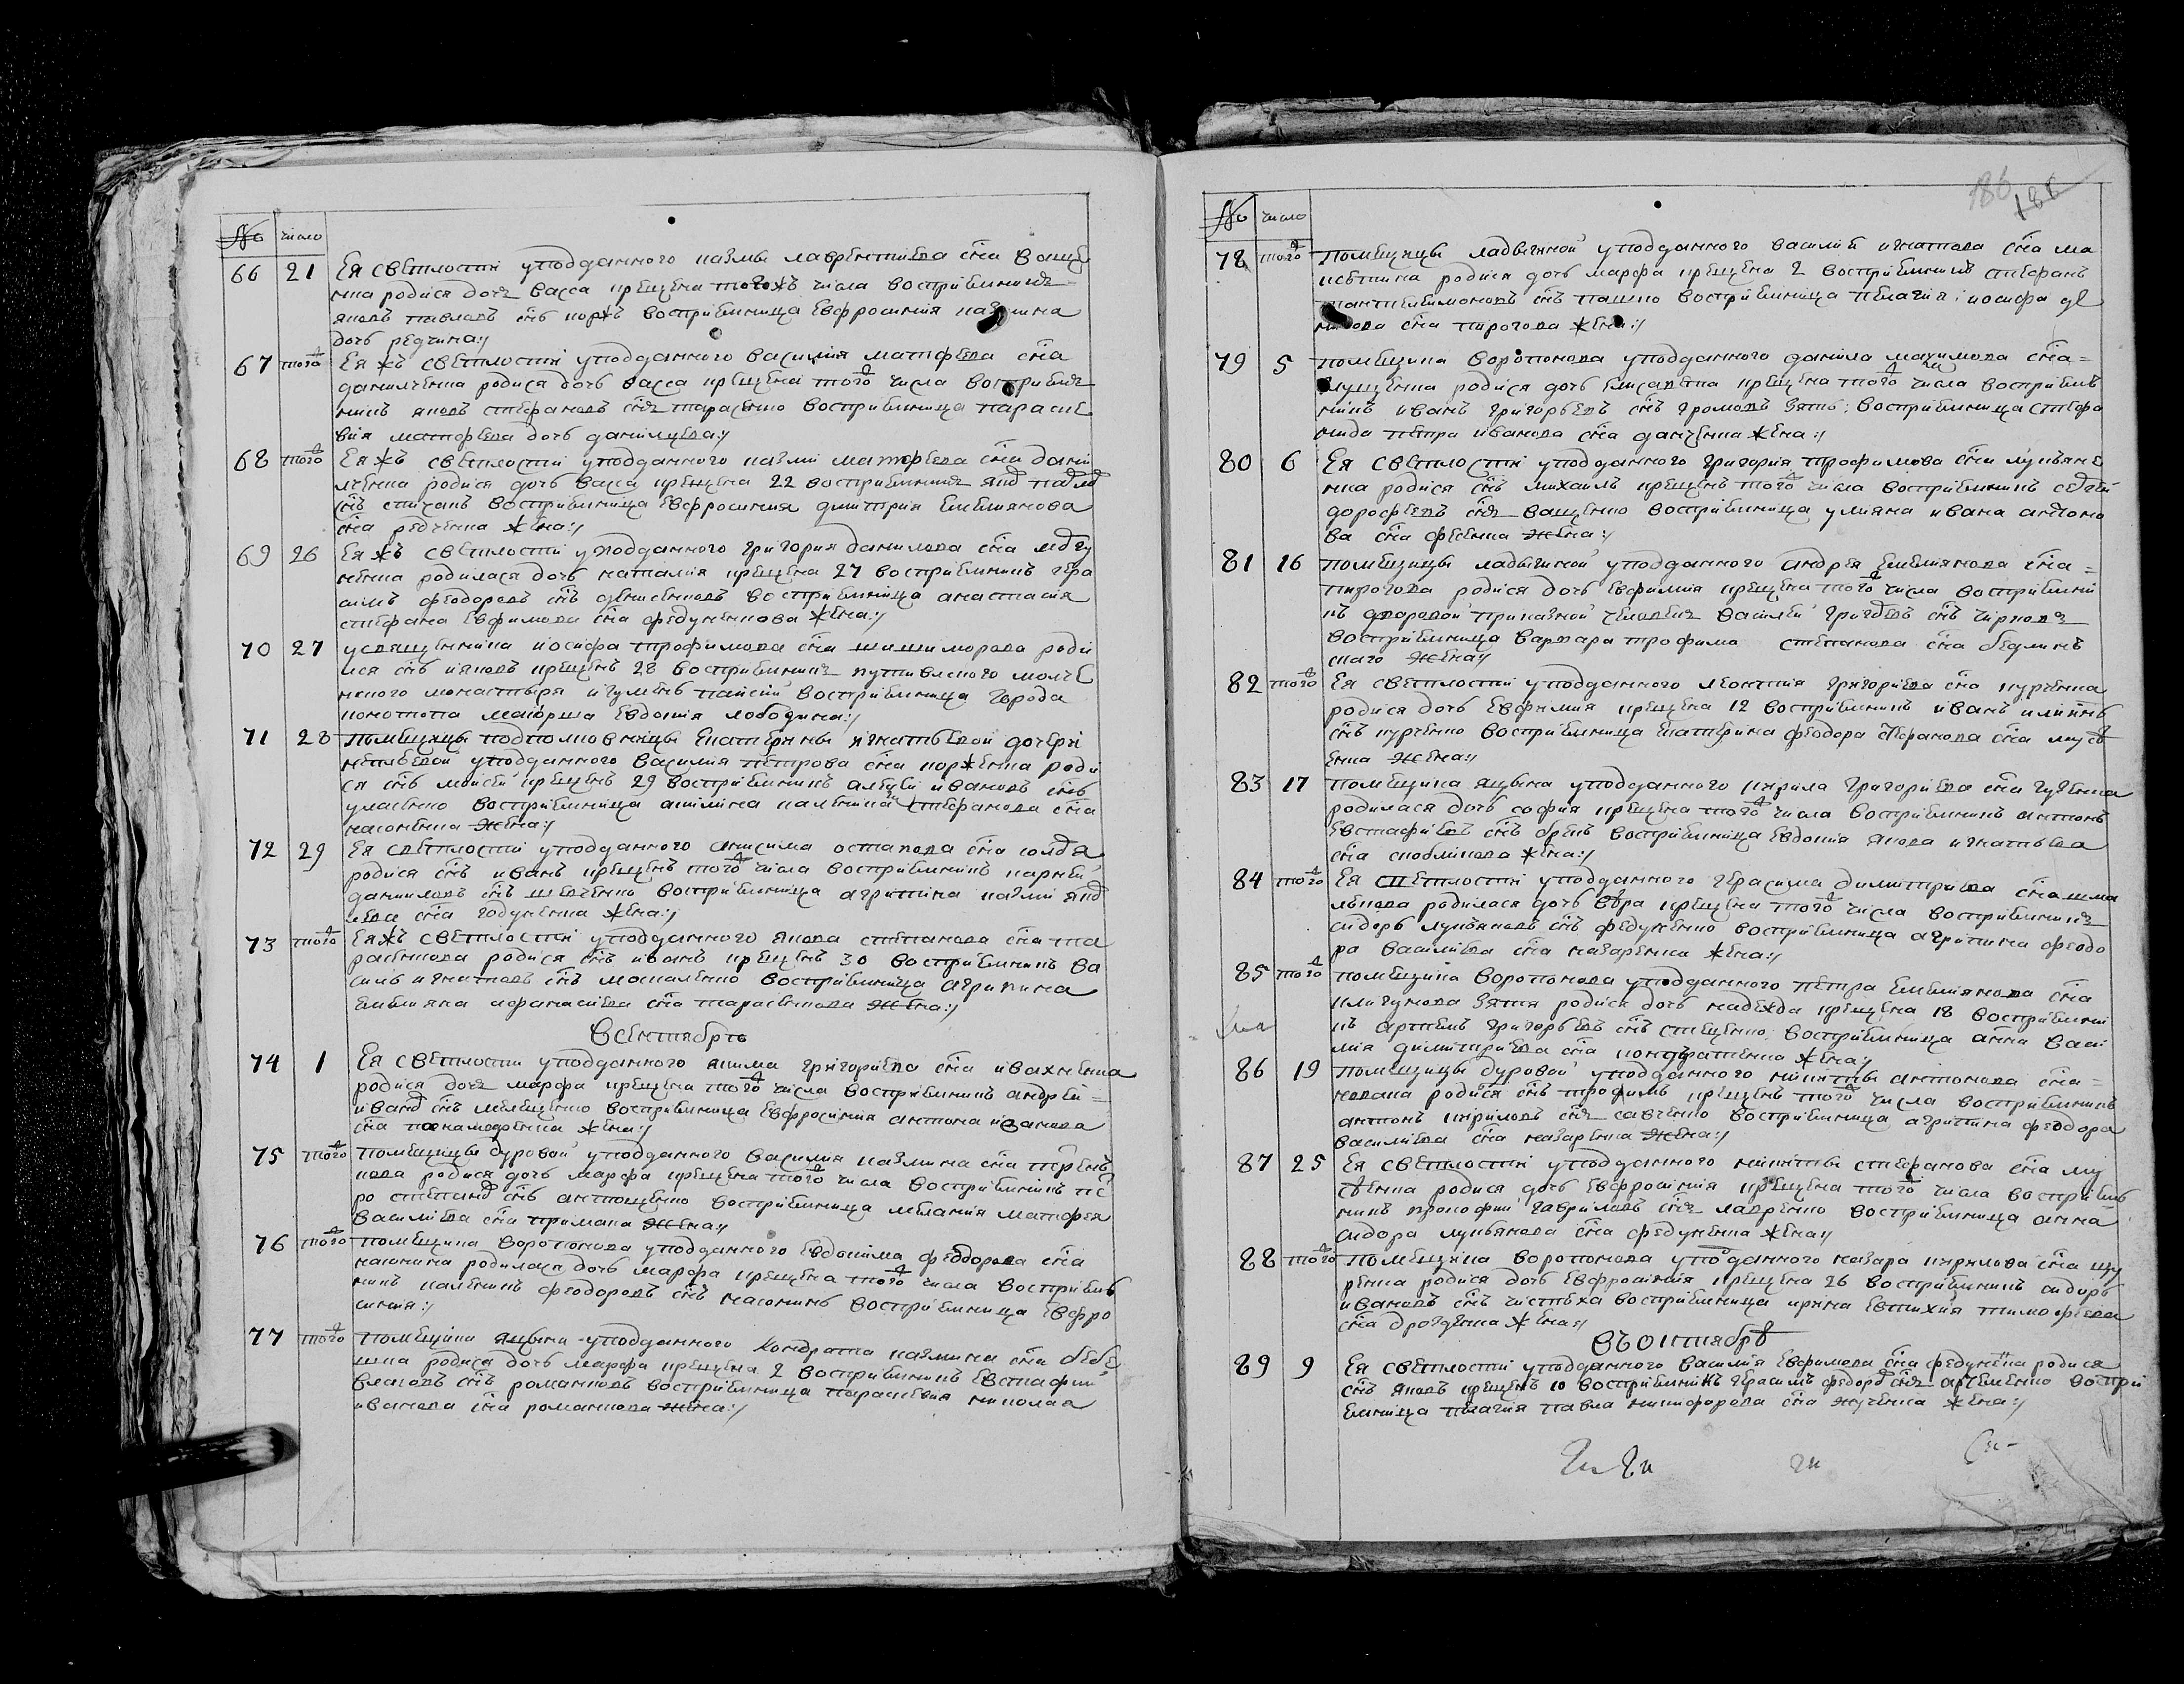 № число
66 21 Ея светлости уподданного казмы лаврентиева сна ващу
нка родися дочь васса крещена тогожъ числа восприемникъ
яковъ павловъ снъ коржъ восприемница евфросиния казмина
дочь редчина
67 тогож Ея жъ светлости уподданного василия матфеева сна
данилченка родися дочь васса крещена тогож числа восприем
никъ яковъ стефановъ снъ тарасенко восприемница параске
вия матфеева дочь
68 тогож Ея жъ светлости уподданного казми матфеева сна дани
лченка родися дочь васса крещена 22 восприемникъ
снъ восприемница евфросиния димитрия емелиянова
сна редченка жена
69 26 Ея жъ светлости уподданного григория данилова сна
родилася дочь наталия крещена 27 восприемникъ гера
симъ феодоровъ снъ денисенковъ восприемница анастасия
стефана евфимова сна федуненкова
70 27 усвященника иосифа трофимова сна шишиморова роди
лся снъ ияковъ крещенъ 28 восприемникъ путивлского молче
нского монастыря игуменъ паисий восприемница города
конотопа маиорша евдокия лободина
71 28 помещицы подполковницы екатерины игнатьевой дочери
уподданного василия петрова сна коржечка роди
ся снъ моисей крещенъ 29 восприемникъ алексей ивановъ снъ
уласенко восприемница акилина каленика стефанова сна
жена
72 29 Ея светлости уподданного анисима остапова сна
родися снъ иванъ крещенъ тогож числа восприемникъ карней
данииловъ снъ шевченко восприемница агрипина казми яко
влева сна годуненка жена
73 тогож Ея жъ светлости уподданного якова степанова сна та
расенкова родися снъ иванъ крещенъ 30 восприемникъ ва
силь игнатовъ снъ москаленко восприемница агрипина
емелияна афанасиева сна тарасенкова жена
Всентябре
74 1 Ея светлости уподданного якима григориева сна ивахненка
родися дочь марфа крещена тогож числа восприемникъ андрей
иванов снъ восприемница евфросиния антона иванова
сна жена
75 тогож помещицы дуровой уподданного василия казмина сна
родися дочь марфа крещена тогож числа восприемникъ пе
ро степанов снъ антощенко восприемница мелания матфея
василиева сна примака жена
76 тогож помещика воропонова уподданного евдокима феодорова сна
родилася дочь марфа крещена тогож числа восприем
никъ каленикъ феодоровъ снъ восприемница евфро
синия
77 тогож помещика яцына уподданного кондрата казмина сна
родися дочь марфа крещена 2 восприемникъ евстафий
власовъ снъ романковъ восприемница параскевия николая
иванова сна романкова жена
186 186
№ число
78 тогож помещицы ладыгиной уподданного василия игнатова сна ма
родися дочь марфа крещена 2 восприемникъ стефанъ
пантелеимоновъ снъ пашко восприемница пелагия иосифа
сна пирогова жена
79 5 помещика воропонова уподданного данила макимова сна
родися дочь елисавета крещена тогож числа восприем
никъ иванъ григорьевъ снъ громовъ зять восприемница стефа
нида петра иванова сна данченка жена
80 6 Ея светлости уподданного григория трофимова сна лукьяне
нка родися снъ михаилъ крещенъ тогож числа восприемникъ
дорофеевъ снъ ващенко восприемница улияна ивана антоно
ва сна фесенка жена
81 16 помещицы ладыгиной уподданного андрея емелиянова сна
пирогова родися дочь евфимия крещена тогож числа восприемни
къ дворовой приказной человекъ василей снъ чирковъ
восприемница варвара трофима степанова сна
жена
82 тогож Ея светлости уподданного леонтия григориева сна курченка
родися дочь евфимия крещена 12 восприемникъ иванъ илиинъ
снъ курченко восприемница екатерина феодора стефанова сна
жена
83 17 помещика яцына уподданного кирила григориева сна
родилася дочь софия крещена тогож числа восприемникъ антонъ
евстафиевъ снъ восприемница евдокия якова игнатьева
сна жена
84 тогож Ея светлости уподданного герасима димитриева сна шма
лкова родилася дочь вера крещена тогож числа восприемникъ
сидоръ лукьяновъ снъ федуненко восприемница агрипина феодо
ра василиева сна назаренка жена
85 тогож помещика воропонова уподданного петра емелиянова сна
зятя родися дочь надежда крещена 18 восприемни
къ артемъ григорьевъ снъ восприемница анна васи
лия димитриева сна кондратенка жена
86 19 помещицы дуровой уподданного никиты антонова сна
родися снъ трофимъ крещенъ тогож числа восприемникъ
антонъ кириловъ снъ савченко восприемница агрипина феодора
василиева сна назаренка жена
87 25 Ея светлости уподданного никиты стефанова сна
родися дочь евфросиния крещена тогож числа восприем
никъ прокофий гавриловъ снъ лавренко восприемница анна
сидора лукьянова сна федуненка жена
88 тогож помещика воропонова уподданного назара кирилова сна
родися дочь евфросиния крещена 26 восприемникъ сидоръ
ивановъ снъ чистюха восприемница ирина евтихия тимофеева
сна жена
Въ октябре
89 9 Ея светлости уподданного василия евфимова сна федуненка родися
снъ яковъ крещенъ 10 восприемникъ герасимъ федоров снъ артеменко воспри
емница пелагия павла никифорова сна жученка жена